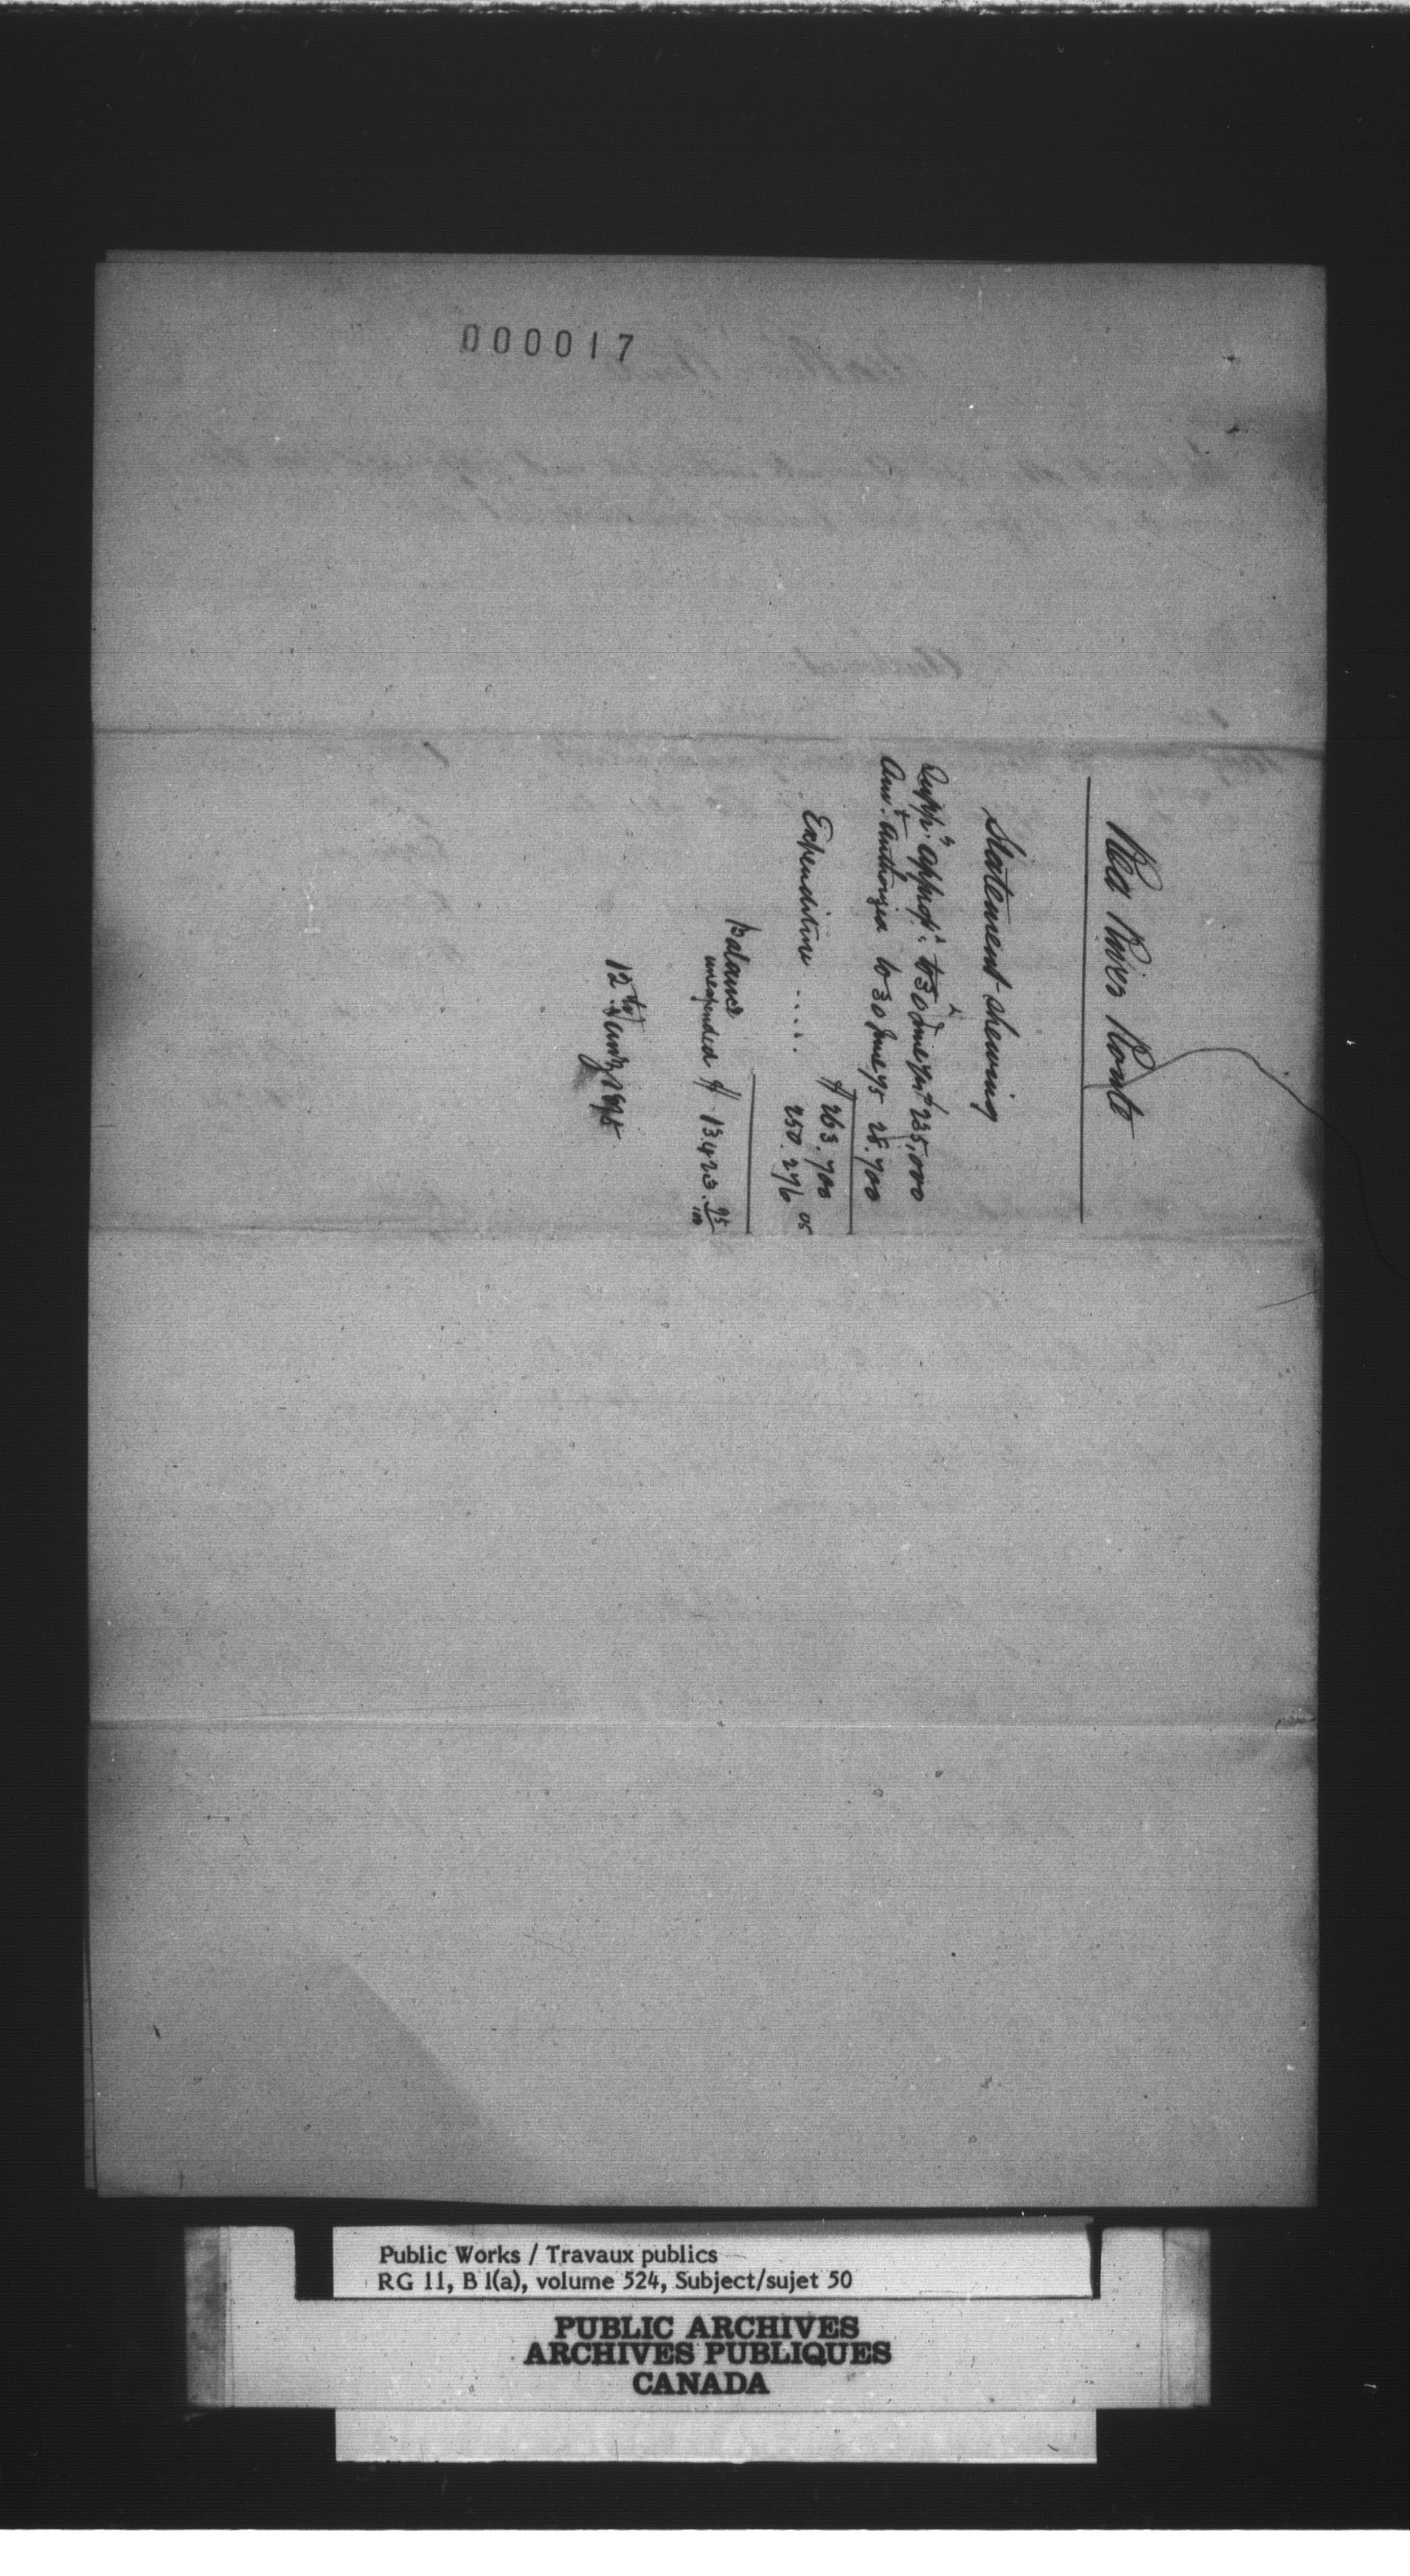 000017
Red River Route
Statement shewing
Supp.y approp.n to 30 June 74 $ 235,000
Am.t authorized to 30 June 75 28.700
$ 263.700
Expenditure .... 250.276 05
Balance
unexpended $ 13.423.95/100
12th 1875
Public Works / Travaux publics
RG 11, B 1(a), volume 524, Subject/sujet 50
PUBLIC ARCHIVES
ARCHIVES PUBLIQUES
CANADA